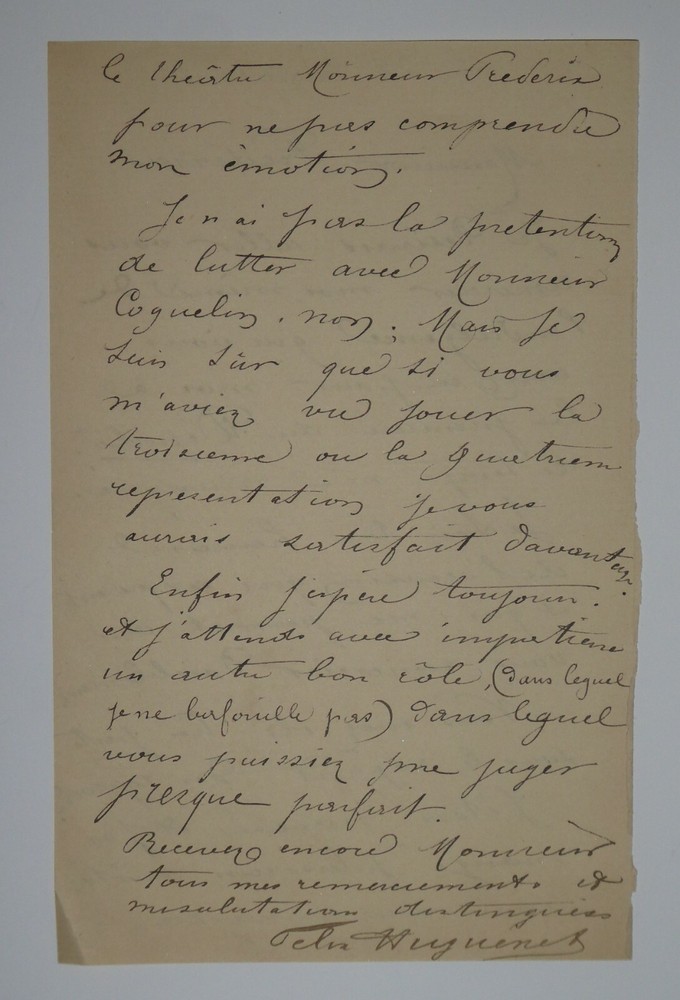 le théâtre Monsieur Frederix
pour ne pas comprendre
mon émotion.
Je n'ai pas la pretention
de lutter avec Monsieur
Coquelin, non; Mais je
suis sûr que si vous
m'aviez vu jouer la
troisieme ou la quatrieme
representation je vous
aurais satisfait davantage.
Enfin j'espère toujours.
et j'attends avec impatience
un autre bon rôle, (dans lequel
je ne bafouille pas) dans lequel
vous puissiez me juger
presque parfait.
Recevez encore Monsieur
tous mes remerciements et
mes salutations distinguées
Felix Huguenet